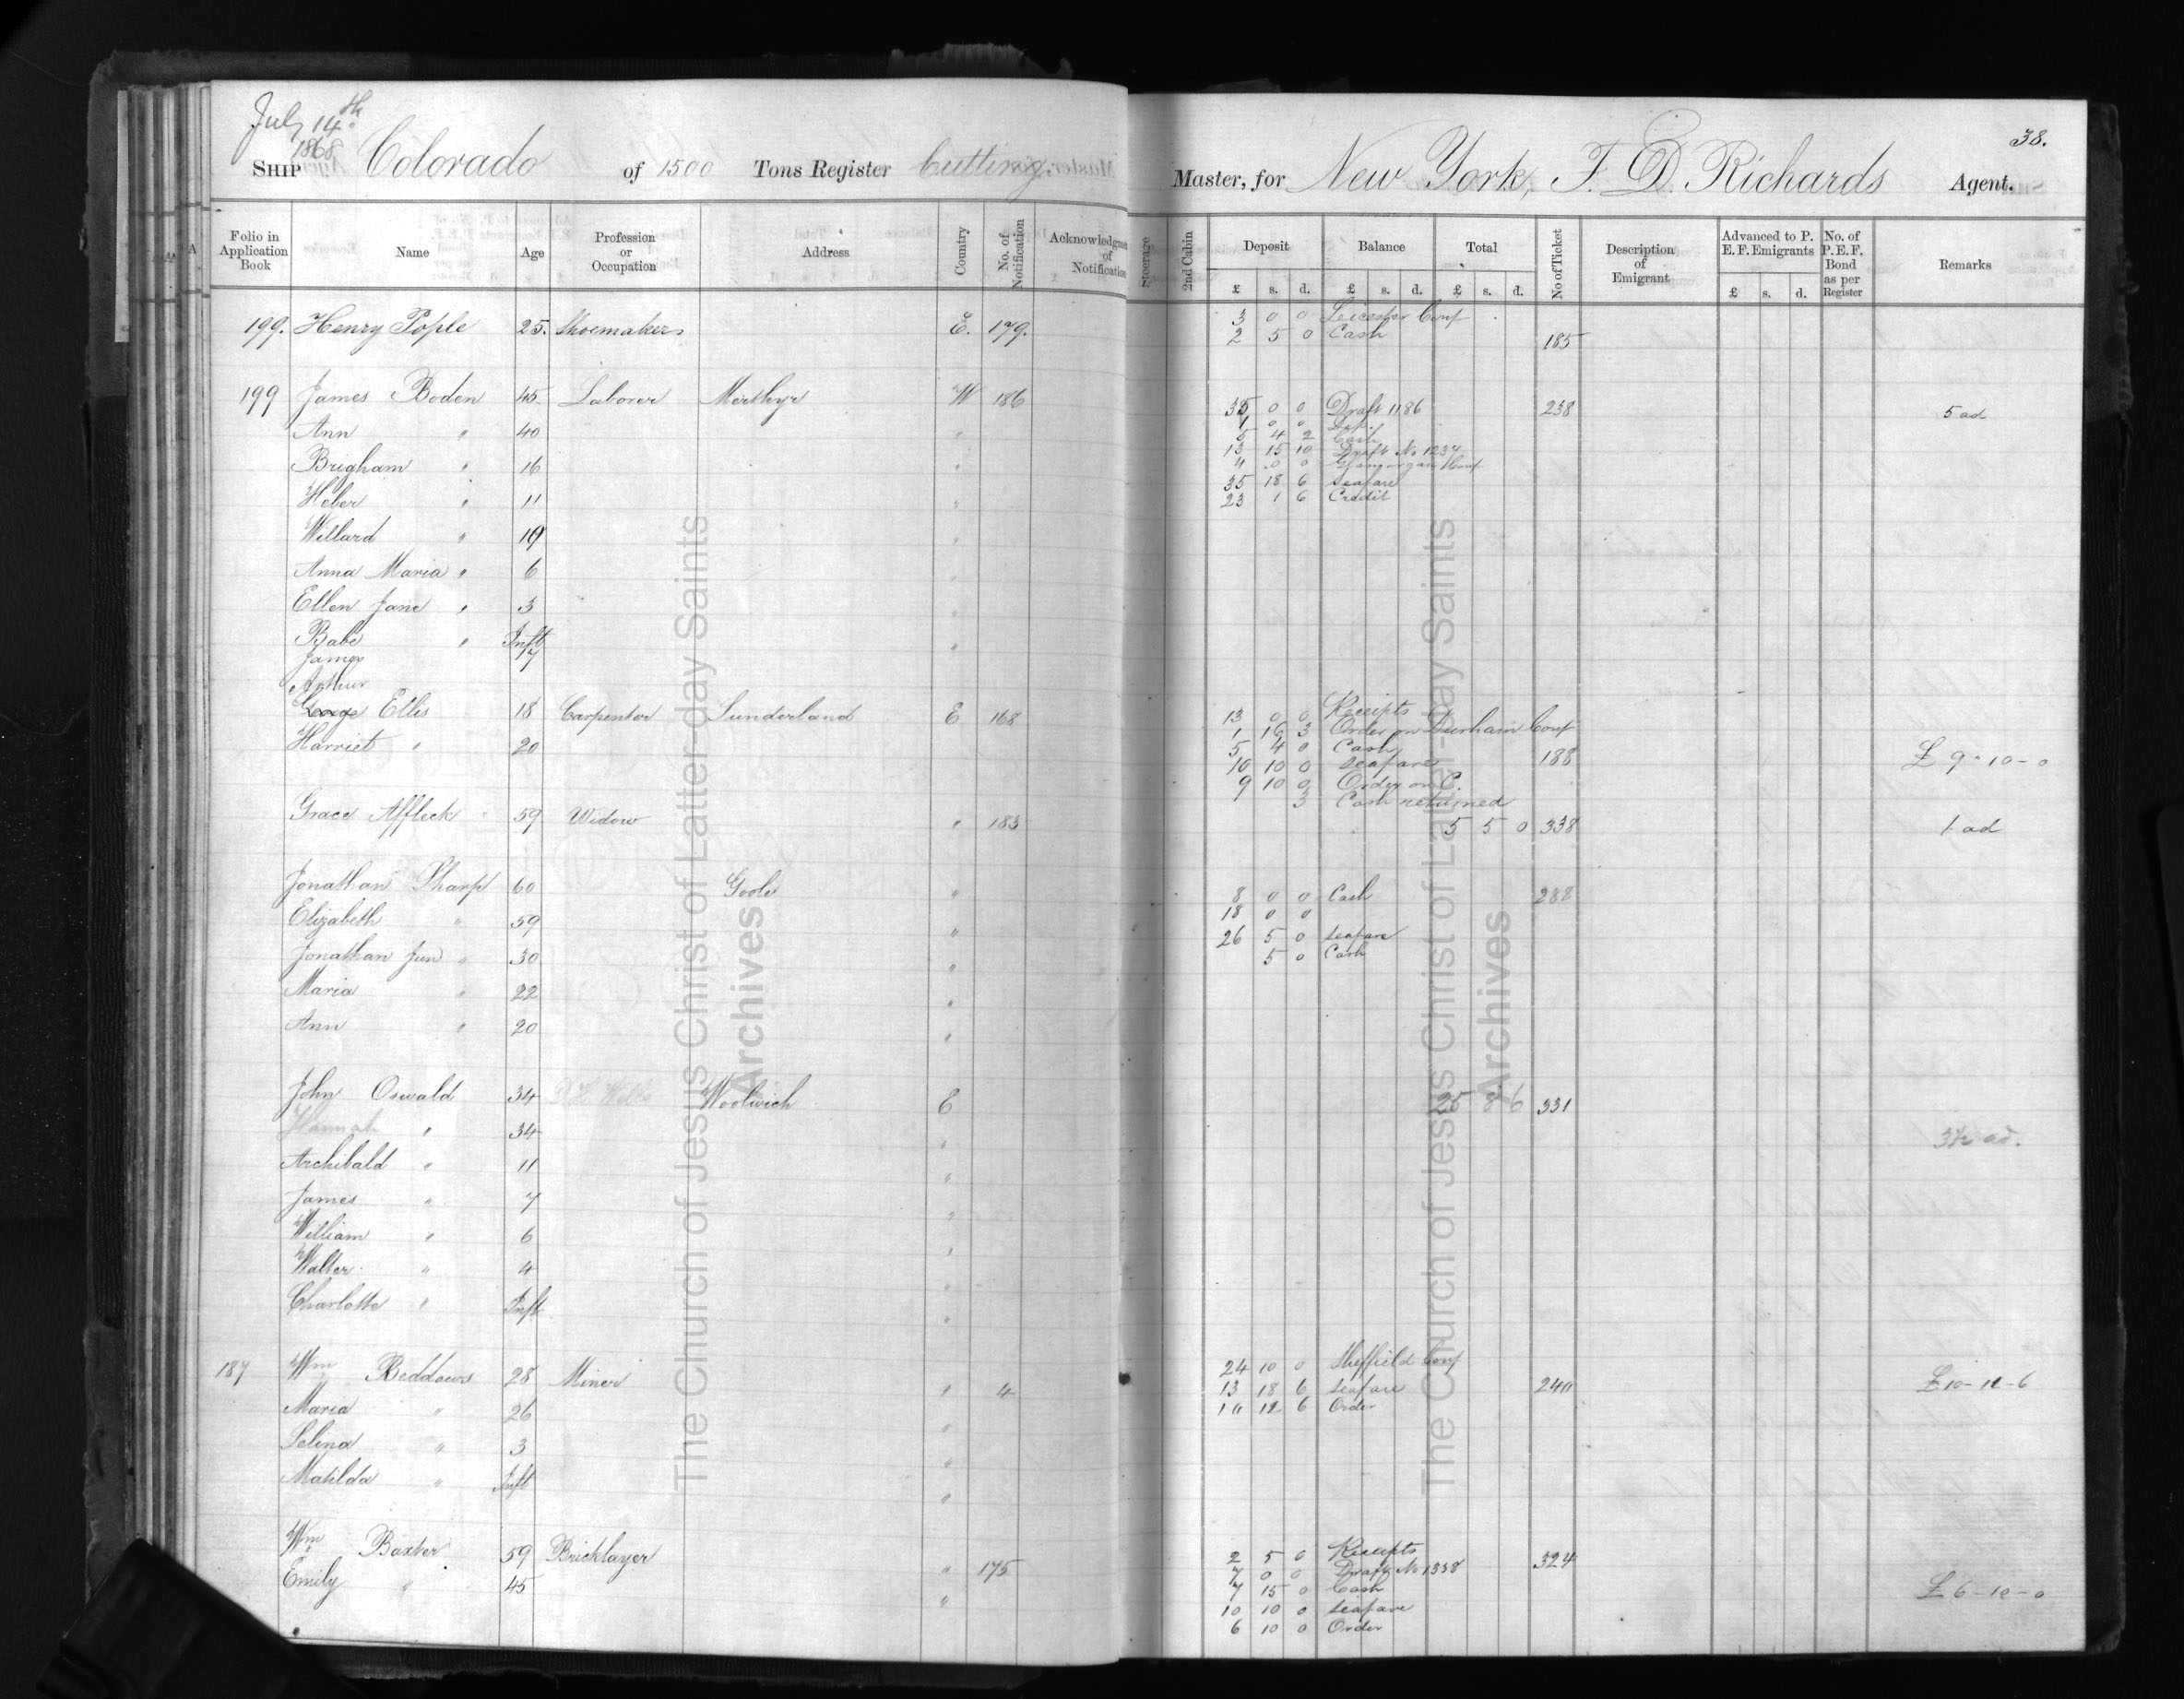 July 14th
1868
SHIP Colorado of 1500 Tons Register Cutting Master, for New York, F. D. Richards Agent.
38.
Folio in Application Book Name Age Profession or Occupation Address Country No. of Notification Acknowledgment of Notification Steerage 2nd Cabin Deposit Balance Total No of Ticket Description of Emigrant Advanced to P. E. F. Emigrants No. of P.E.F. Bond as per Register Remarks
£ s. d. £ s. d. £ s. d. £ s. d.
3 0 0 Leicester Conf
199. Henry Pople 25. Shoemaker E. 179. 2 5 0 Cash 185
199 James Boden 45 Laborer Merthyr W 186 35 0 0 Draft 1186 238 5 ad
1 0 0
Ann " 40 " 5 4 2 Cash
13 15 10 Draft No 1234
Brigham " 16 " 4 0 0 Glamorgan Conf
35 18 6 Seafare
Heber " 11 " 23 1 6 Credit
Willard " 19 "
Anna Maria " 6 "
Ellen Jane " 3 "
Babe " Inft "
James 7
Arthur
George Ellis 18 Carpenter Sunderland E 168 13 0 0 Receipts
1 16 3 Order on Durham Conf
Harriet " 20 5 4 0 Cash
10 10 0 Seafare 188 £ 9-10-0
9 10 0 Order on C.
3 Cash returned
Grace Affleck 59 Widow " 183 5 5 0 338 1 ad
Jonathan Sharp 60 Goole " 8 0 0 Cash 288
18 0 0
Elizabeth " 59 " 26 5 0 Seafare
Jonathan Jun " 30 " 5 0 Cash
Maria " 22 "
Ann " 20 "
John Oswald 34 D H Wells Woolwich E 25 8 6 331
Hannah " 34 " 3½ ad.
Archibald " 11 "
James " 7 "
William " 6 "
Walter " 4 "
Charlotte " Inft "
24 10 0 Sheffield Conf
187 Wm Beddows 28 Miner " 4 13 18 6 Seafare 240 £10-12-6
Maria " 26 " 10 12 6 Order
Selina " 3 "
Matilda " Inft "
Wm Baxter 59 Bricklayer " 175 2 5 0 Receipts 324
7 0 0 Draft No 1338
Emily " 45 " 7 15 0 Cash £ 6-10-0
10 10 0 Seafare
6 10 0 Order
The Church of Jesus Christ of Latter-day Saints
Archives
The Church of Jesus Christ of Latter-day Saints
Archives